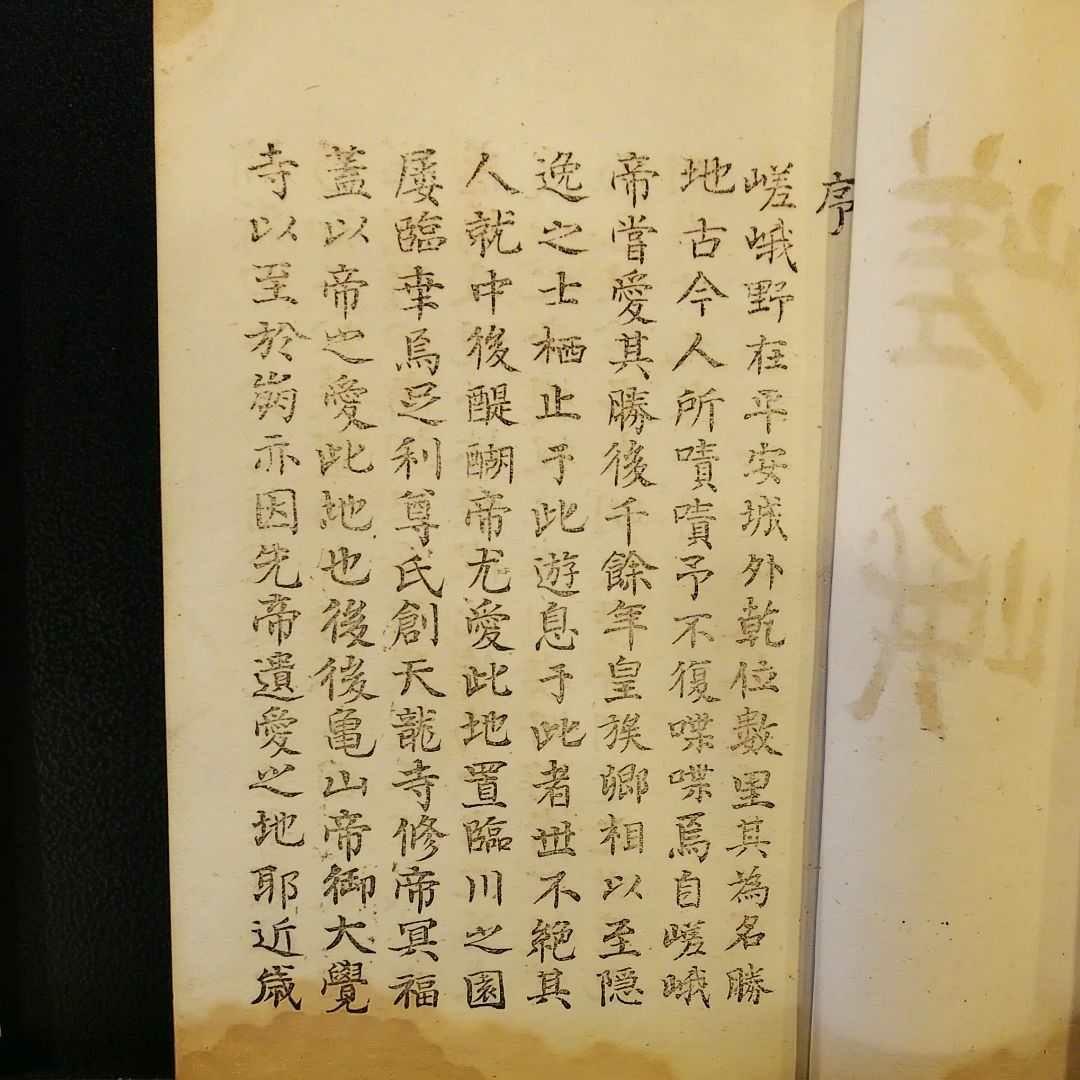 序
嵯峨野在平安城外乾位數里其為名勝
地古今人所嘖嘖予不復喋喋焉自嵯峨
帝嘗愛其勝後千餘年皇族卿相以至隠
逸之士栖止于此遊息于此者世不絶其
人就中後醍醐帝尤愛此地置臨川之園
屡臨幸焉足利尊氏創天龍寺修帝冥福
蓋以帝之愛此地也後後亀山帝御大覺
寺以至於崩亦因先帝遺愛之地耶近歳